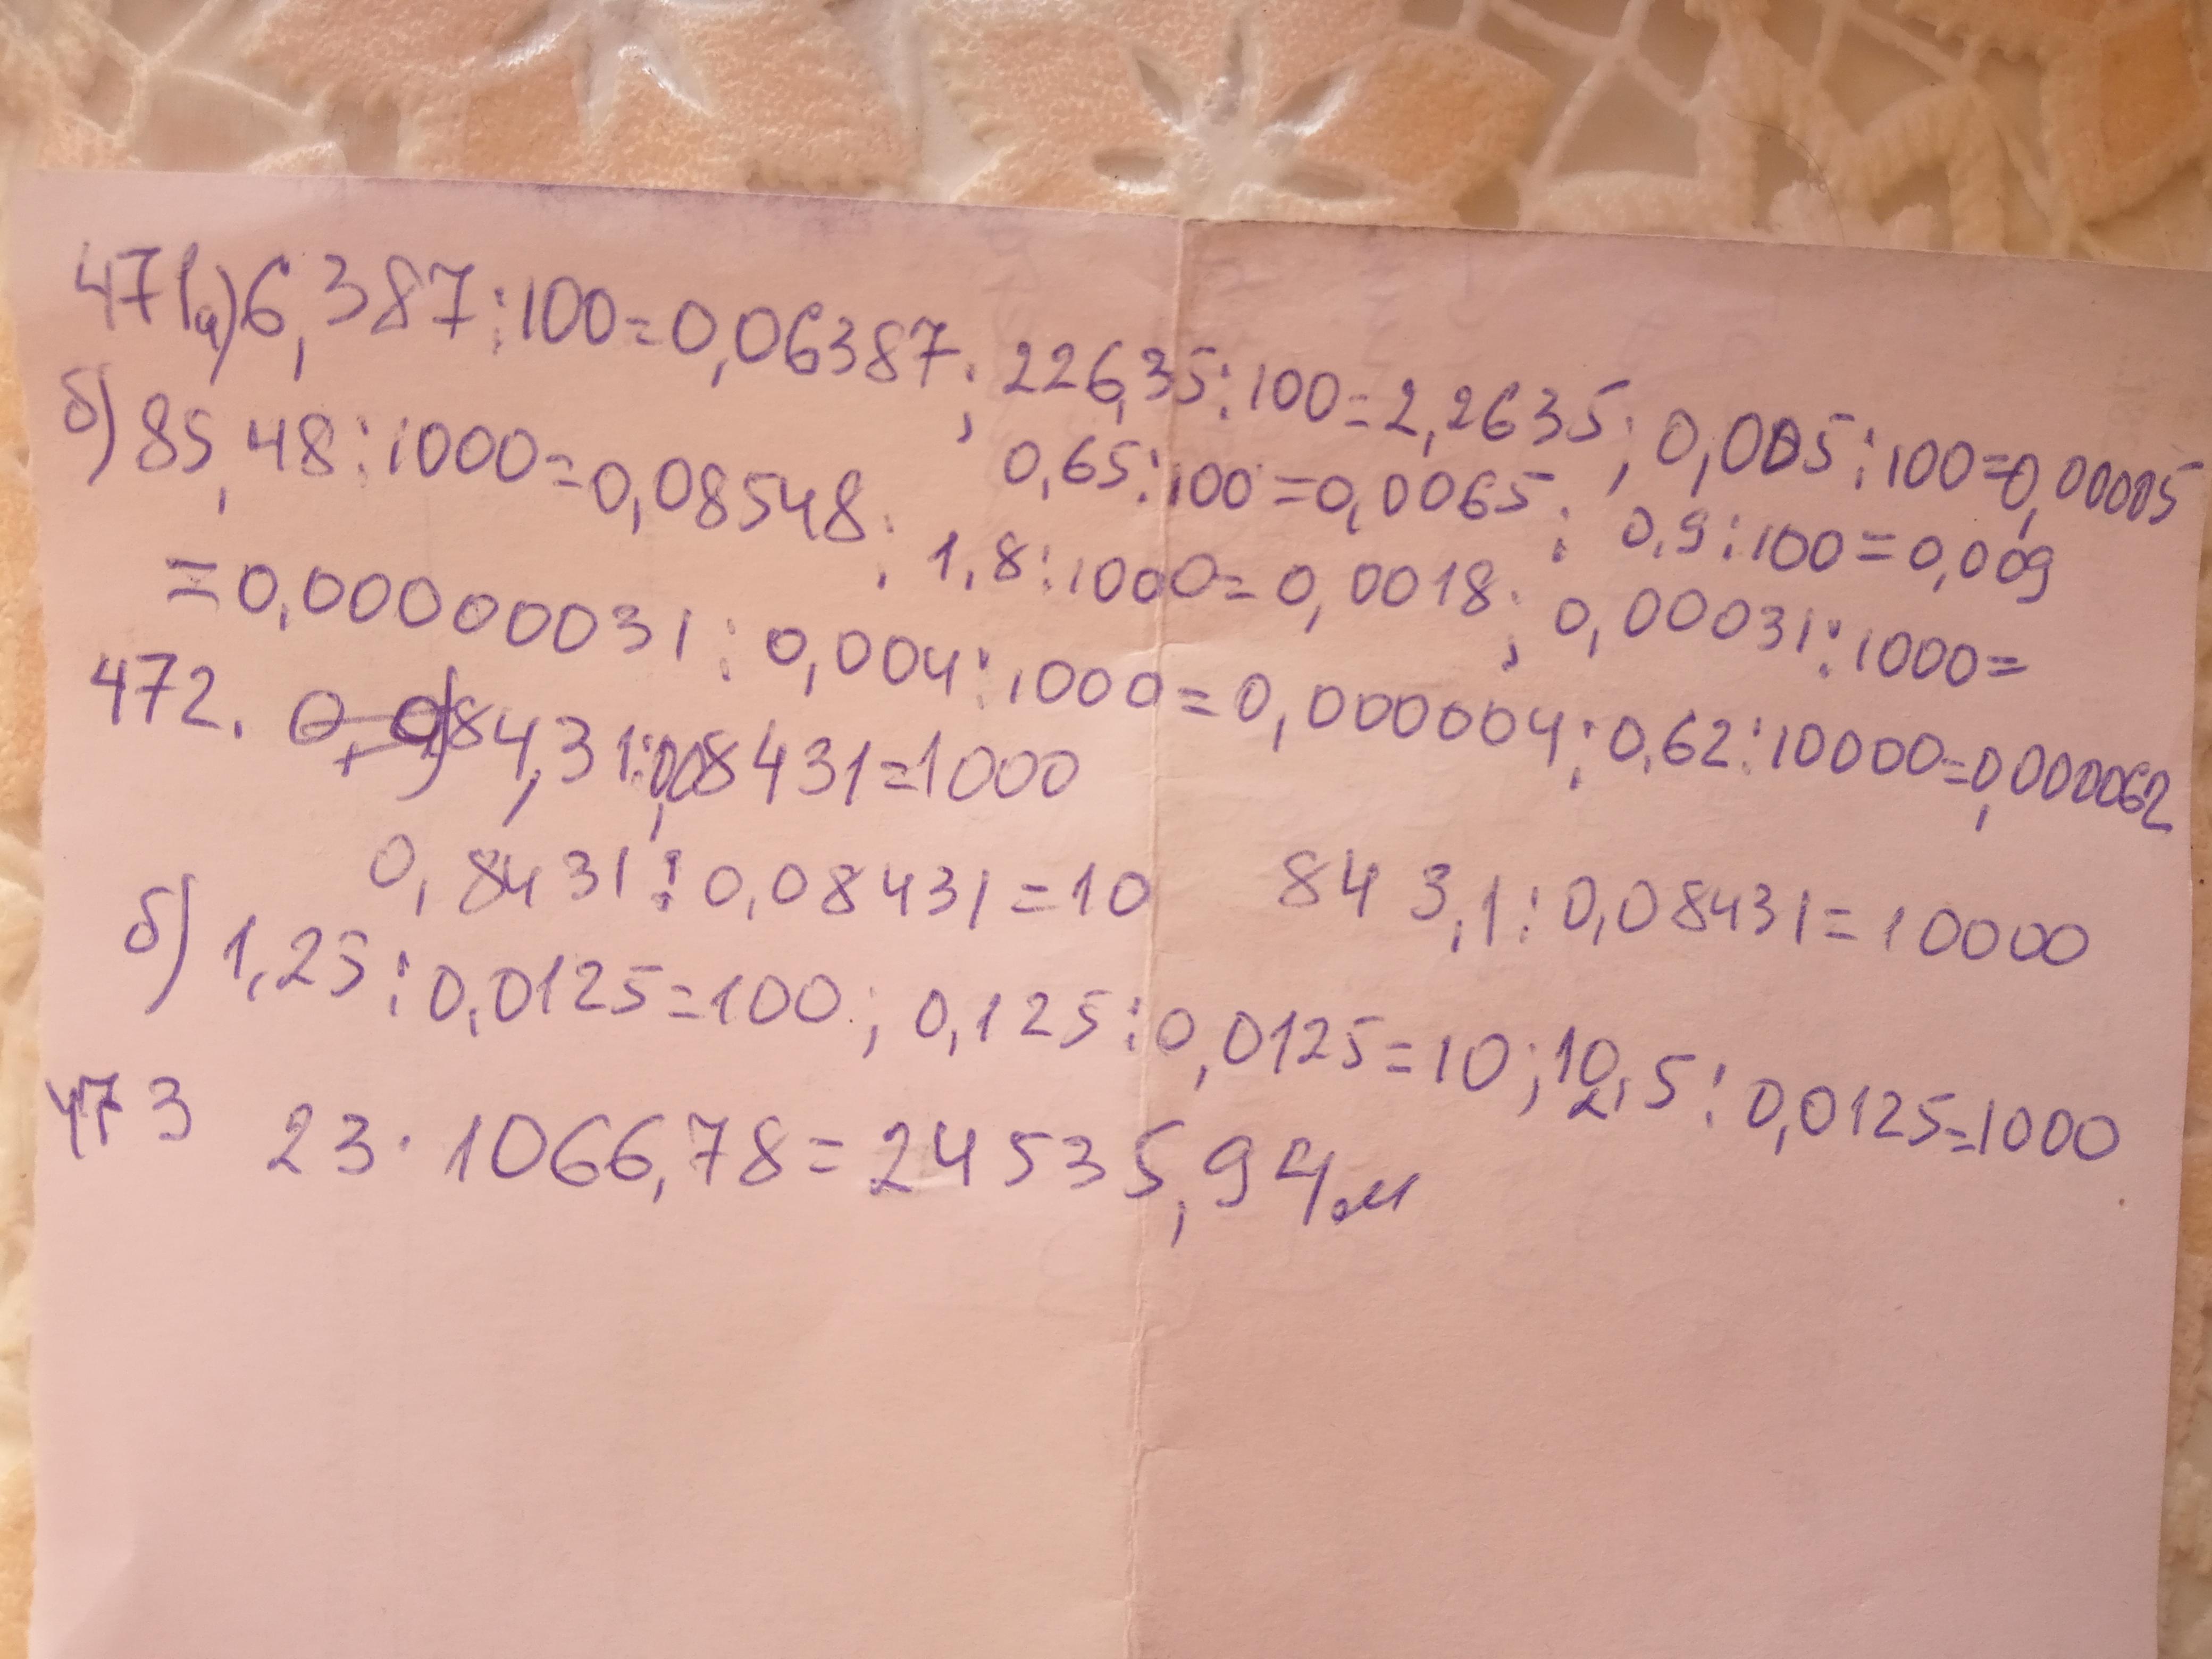 471а) 6,387:100=0,06387; 226,35:100=2,2635; 0,005:100=0,00005
0,65:100=0,0065; 0,9:100=0,009
б) 85,48:1000=0,08548; 1,8:1000=0,0018; 0,00031:1000=
=0,00000031; 0,004:1000=0,000004; 0,62:10000=0,000062
472. 84,31:0,08431=1000
0,8431:0,08431=10 843,1:0,08431=10000
б) 1,25:0,0125=100; 0,125:0,0125=10; 12,5:0,0125=1000
473 23·1066,78=24535,94м